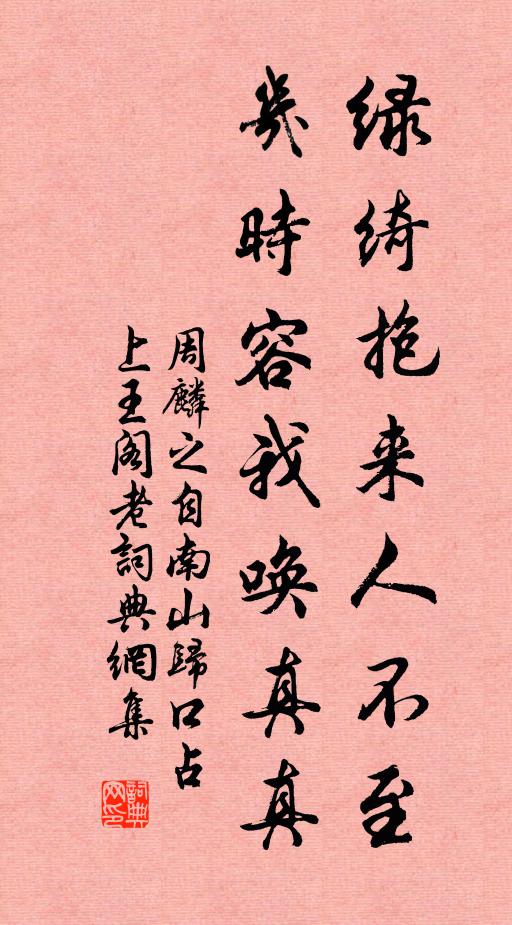 绿绮抱来人不至
幾時容我唤真真
周麟之自南山歸口占
上王阁老詞典網集
詞典网印